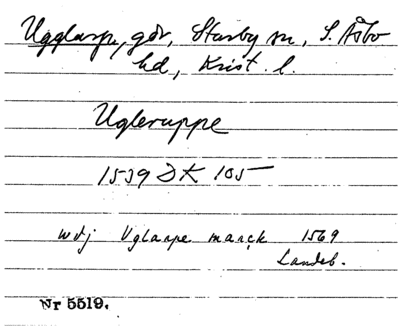 Ugglarp, gdr, Starby sn, S. Åsbo
hd, Krist. l.
Ugleruppe
1539 DK 105
Uglarpe marck 1569
Landeb.
Nr 5519.